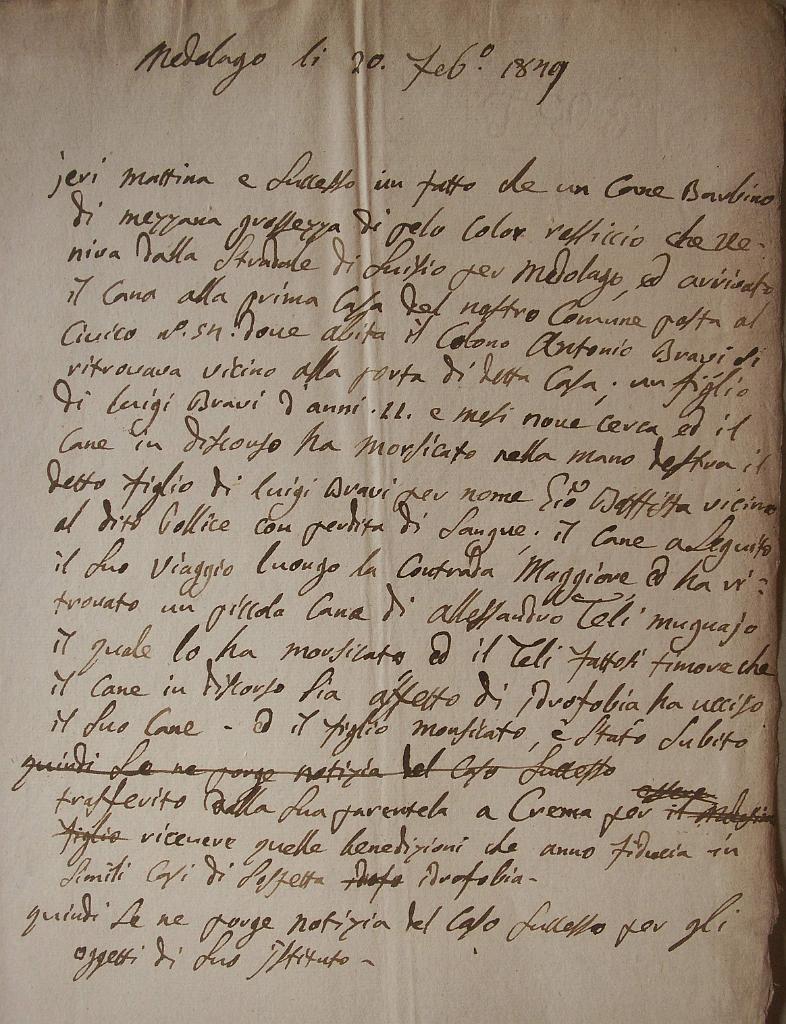 Medolago li 20. Feb.º 1849
jeri mattina e Successo un fatto che un Cane Barbino
di mezzana grossezza di pelo Color rossiccio che ve-
niva dalla Stradale di Suisio per Medolago, ed arrivato
il Cana alla prima Casa del nostro Comune posta al
Civico nº. 57. dove abita il Colono Antonio Bravi Si
ritrovava vicino alla porta di detta Casa; un figlio
di luigi Bravi d'anni .11. e mesi nove cerca, ed il
Cane in discorso ha morsicato nella mano destra il
detto figlio di luigi Bravi per nome Gioº Battista vicino
al dito Pollice con perdita di Sangue; il Cane a Seguito
il Suo Viaggio luongo la Contrada Maggiore, ed ha ri-
trovato un piccola Cana di allessandro Teli mugnajo
il quale lo ha morsicato, ed il Teli fattosi timore che
il Cane in discorso Sia affetto di idrofobia ha ucciso
il Suo Cane - ed il figlio morsicato, è Stato Subito
quindi Se ne porge notizia del Caso Successo
trasferito dalla Sua parentela a Crema per essere il medesimo
figlio ricevere quelle benedizioni che anno fiducia in
Simili Casi di Sospetta idrofobia-
quindi Se ne porge notizia del Caso Successo per gli
oggetti di Suo jstituto-